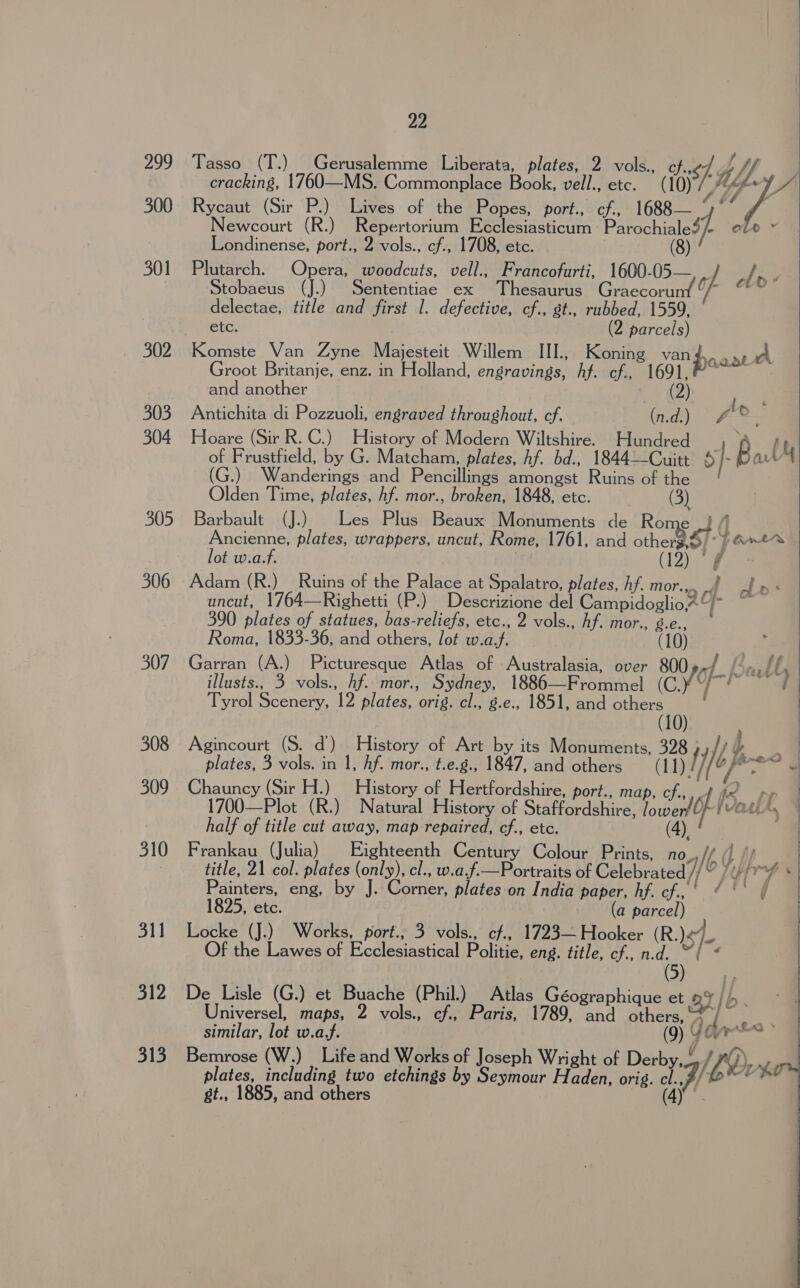 22
299 Tasso (T.) Gerusalemme Liberata, plates, 2 vols., cf.,
cracking, 1760—MS. Commonplace Book, vell., etc. (10)
300 Rycaut (Sir P.) Lives of the Popes, port., cf., 1688—
Newcourt (R.) Repertorium Ecclesiasticum Parochiale
Londinense, port., 2 vols., cf., 1708, etc. (8)
301 Plutarch. Opera, woodcuts, vell., Francofurti, 1600-05—
Stobaeus (J.) Sententiae ex Thesaurus Graecorum
delectae, title and first l. defective, cf., gt., rubbed, 1559,
etc. (2 parcels)
302 Komste Van Zyne Majesteit Willem III., Koning van
Groot Britanje, enz. in Holland, engravings, hf. cf., 1691,
and another (2)
303 Antichita di Pozzuoli, engraved throughout, cf. (n.d.)
304 Hoare (Sir R. C.) History of Modern Wiltshire. Hundred
of Frustfield, by G. Matcham, plates, hf. bd., 1844—Cuitt
(G.) Wanderings and Pencillings amongst Ruins of the
Olden Time, plates, hf. mor., broken, 1848, etc. (3)
305 Barbault (J.) Les Plus Beaux Monuments de Rome
Ancienne, plates, wrappers, uncut, Rome, 1761, and others,
lot w.a.f. (12)
306 Adam (R.) Ruins of the Palace at Spalatro, plates, hf. mor.,
uncut, 1764—Righetti (P.) Descrizione del Campidoglio,
390 plates of statues, bas-reliefs, etc., 2 vols., hf. mor., g.e.,
Roma, 1833-36, and others, lot w.a.f. (10)
307 Garran (A.) Picturesque Atlas of Australasia, over 800
illusts., 3 vols., hf. mor., Sydney, 1886—Frommel (C.)
Tyrol Scenery, 12 plates, orig. cl., g.e., 1851, and others
(10)
308 Agincourt (S. d') History of Art by its Monuments, 328
plates, 3 vols. in 1, hf. mor., t.e.g., 1847, and others (11)
309 Chauncy (Sir H.) History of Hertfordshire, port., map, cf.,
1700—Plot (R.) Natural History of Staffordshire, lower
half of title cut away, map repaired, cf., etc. (4)
310 Frankau (Julia) Eighteenth Century Colour Prints, no
title, 21 col. plates (only), cl., w.a.f.—Portraits of Celebrated
Painters, eng. by J. Corner, plates on India paper, hf. cf.,
1825, etc. (a parcel)
311 Locke (J.) Works, port., 3 vols., cf., 1723—Hooker (R.)
Of the Lawes of Ecclesiastical Politie, eng. title, cf., n.d.
(5)
312 De Lisle (G.) et Buache (Phil.) Atlas Géographique et
Universel, maps, 2 vols., cf., Paris, 1789, and others,
similar, lot w.a.f. (9)
313 Bemrose (W.) Life and Works of Joseph Wright of Derby,
plates, including two etchings by Seymour Haden, orig. cl.,
gt., 1885, and others (4)